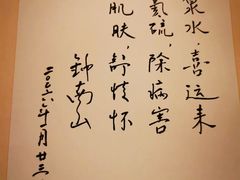 泉水，喜远来
氡硫，除病害
肌肤，舒情怀
钟南山
二〇〇六年一月廿三